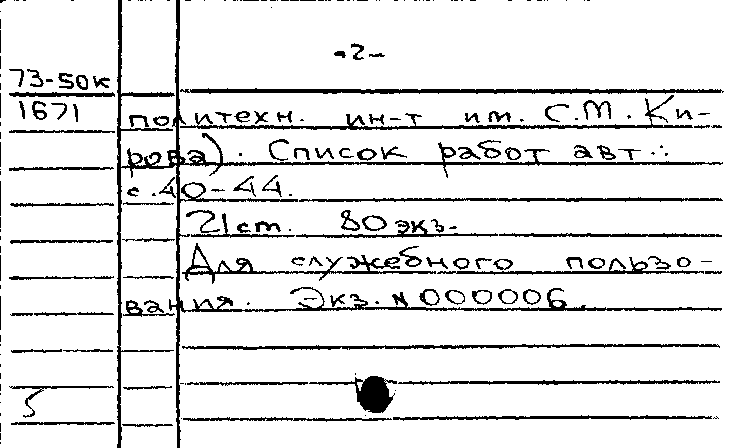 -2-
73-50к
1671
политехн. ин-т им. С.М. Ки-
рова). Список работ авт.:
с. 40-44.
21 ст. 80 экз.
Для служебного пользо-
вания. Экз. N 000006.
5